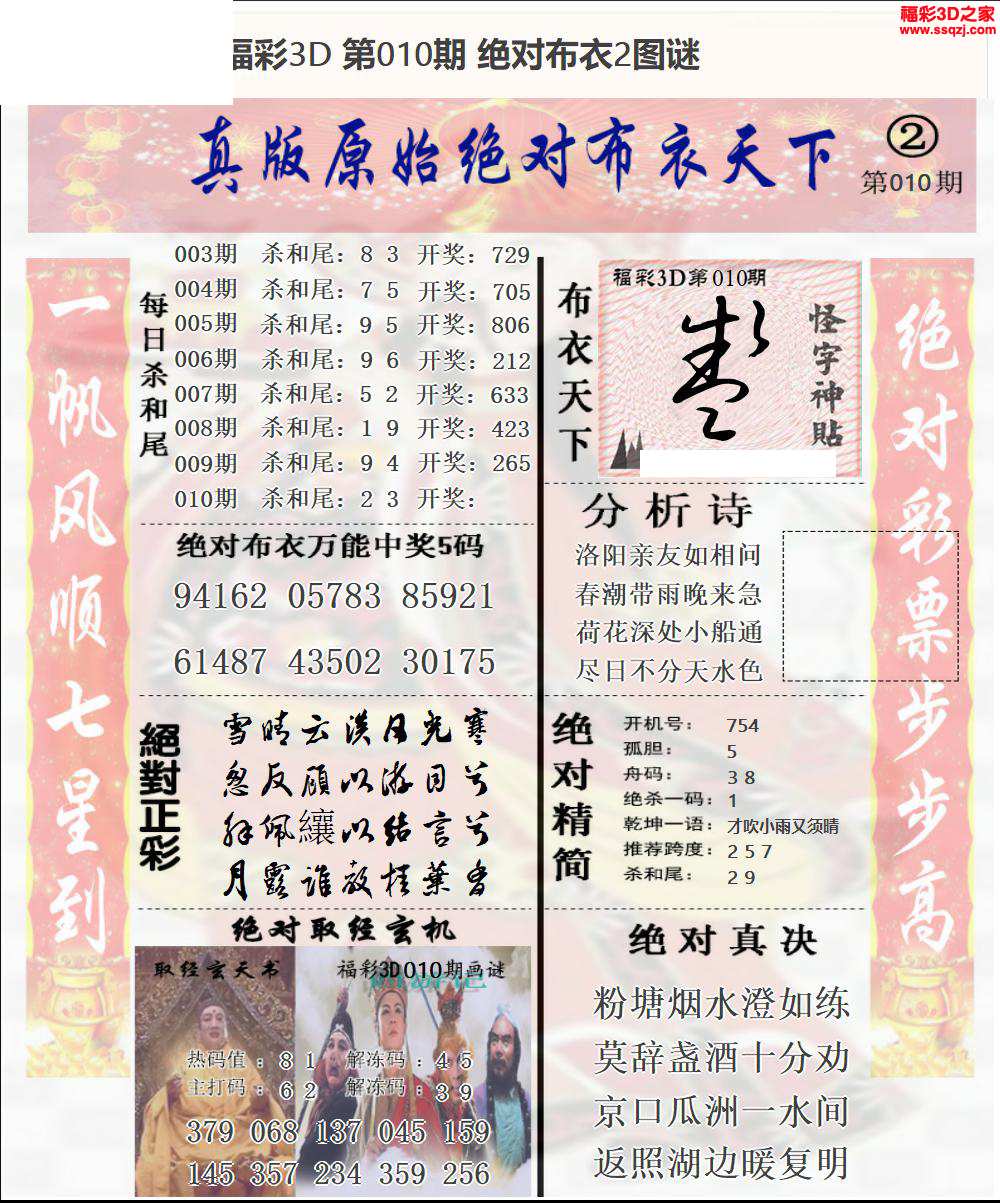 福彩3D之家
www.ssqzj.com
福彩3D 第010期 绝对布衣2图谜
真版原始绝对布衣天下
②
第010期
一帆风顺七星到
每日杀和尾
003期 杀和尾：8 3 开奖：729
004期 杀和尾：7 5 开奖：705
005期 杀和尾：9 5 开奖：806
006期 杀和尾：9 6 开奖：212
007期 杀和尾：5 2 开奖：633
008期 杀和尾：1 9 开奖：423
009期 杀和尾：9 4 开奖：265
010期 杀和尾：2 3 开奖：
绝对布衣万能中奖5码
94162 05783 85921
61487 43502 30175
絕對正彩
雪晴云淡月光寒
忽反顾以游目兮
解佩纕以结言兮
月露谁教桂葉香
绝对取经玄机
取经玄天书
福彩3D010期画谜
热码值：8 1 解冻码：4 5
主打码：6 2 解冻码：3 9
379 068 137 045 159
145 357 234 359 256
布衣天下
福彩3D第010期
怪字神貼
分析诗
洛阳亲友如相问
春潮带雨晚来急
荷花深处小船通
尽日不分天水色
绝对精简
开机号：754
孤胆：5
舟码：3 8
绝杀一码：1
乾坤一语：才吹小雨又须晴
推荐跨度：2 5 7
杀和尾：2 9
绝对真决
粉塘烟水澄如练
莫辞盏酒十分劝
京口瓜洲一水间
返照湖边暖复明
绝对彩票步步高